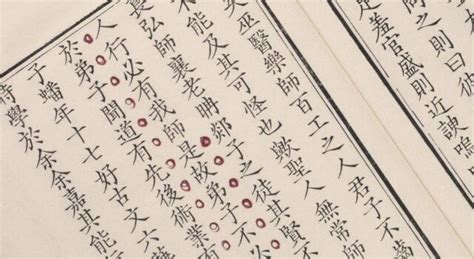 問之則曰彼
足羞官盛則近諛嗚
矣巫醫樂師百工之人君子不齒
不能及其可怪也歟聖人無常師
萇弘師襄老聃郯子之徒其賢不
人行必有我師是故弟子不必
於弟子聞道有先後術業有
子蟠年十七好古文六
時學於余余嘉其能